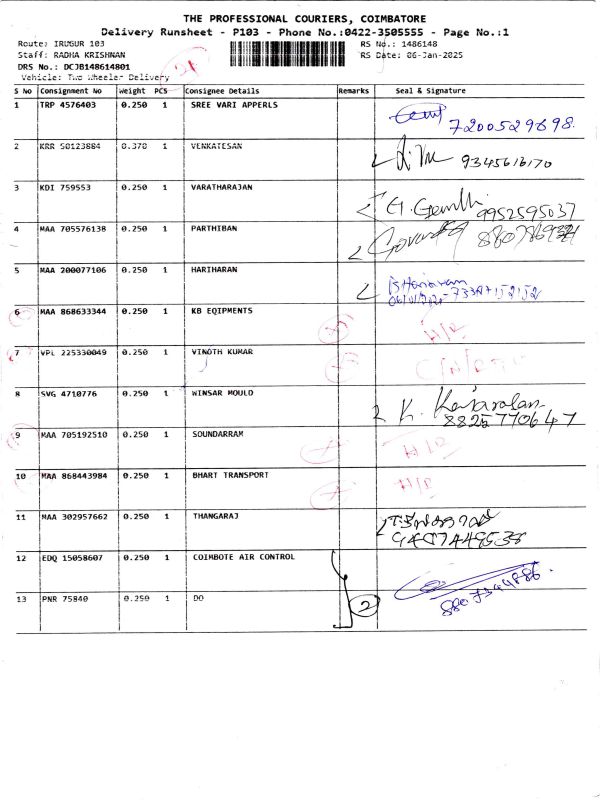 THE PROFESSIONAL COURIERS, COIMBATORE
Delivery Runsheet - P103 - Phone No.:0422-3505555 - Page No.:1
Route: IRUGUR 103
RS No.: 1486148
Staff: RADHA KRISHNAN
RS Date: 06-Jan-2025
DRS No.: DCJB148614801
Vehicle: Two Wheeler Delivery
S No Consignment No Weight PCS Consignee Details Remarks Seal & Signature
1 TRP 4576403 0.250 1 SREE VARI APPERLS
7200529698.
2 KRR 50123884 0.370 1 VENKATESAN
9345616170
3 KDI 759553 0.250 1 VARATHARAJAN
9952595037
4 MAA 705576138 0.250 1 PARTHIBAN
5 MAA 200077106 0.250 1 HARIHARAN
6 MAA 868633344 0.250 1 KB EQIPMENTS
7 VPL 225330049 0.250 1 VINOTH KUMAR
8 SVG 4710776 0.250 1 WINSAR MOULD
8825770647
9 MAA 705192510 0.250 1 SOUNDARRAM
10 MAA 868443984 0.250 1 BHART TRANSPORT
11 MAA 302957662 0.250 1 THANGARAJ
12 EDQ 15058607 0.250 1 COIMBOTE AIR CONTROL
13 PNR 75840 0.250 1 DO
2